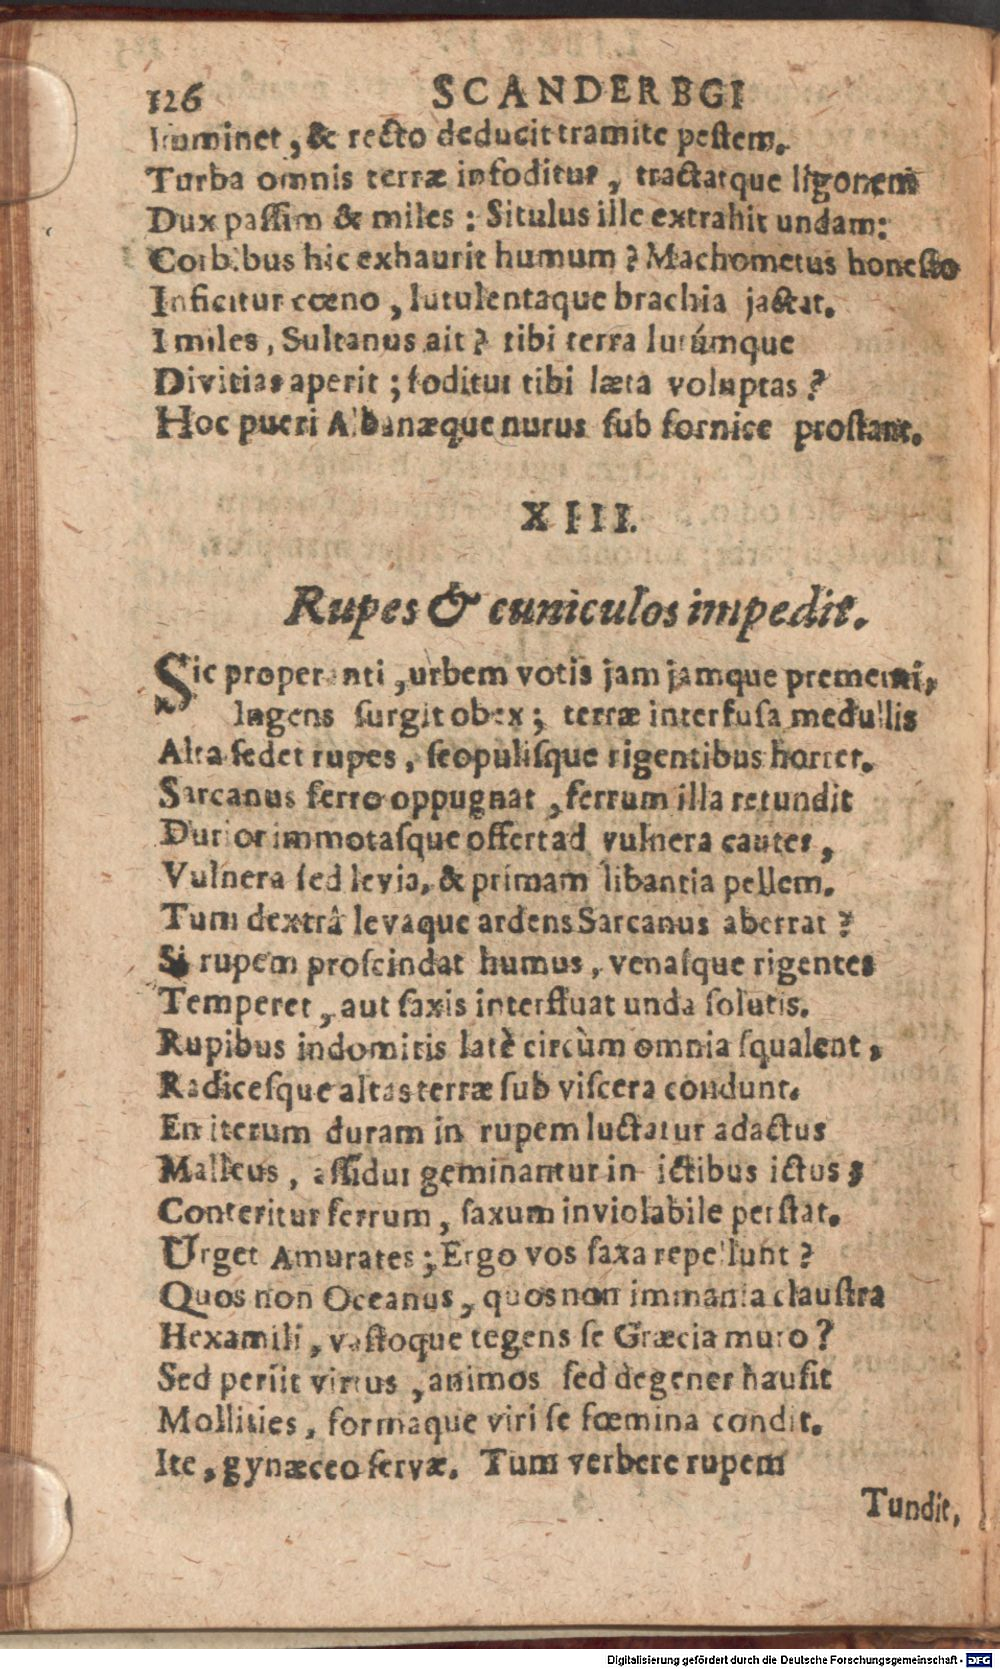 126 SCANDERBGI
Imminet, & recto deducit tramite pestem.
Turba omnis terræ infoditur, tractatque ligonem
Dux passim & miles : Situlus ille extrahit undam:
Corbibus hic exhaurit humum ? Machometus honesto
Inficitur cœno, lutulentaque brachia jactat.
I miles, Sultanus ait ? tibi terra lutúmque
Divitias aperit ; foditur tibi læta voluptas ?
Hoc pueri Albanæque nurus sub fornice prostant.
XIII.
Rupes & cuniculos impedit.
Sic properanti, urbem votis jam jamque prementi,
Ingens surgit obex ; terræ interfusa medullis
Alta sedet rupes, scopulisque rigentibus horret.
Sarcanus ferro oppugnat, ferrum illa retundit
Durior immotasque offert ad vulnera cautes,
Vulnera sed levia, & primam libantia pellem.
Tum dextrâ levaque ardens Sarcanus aberrat ?
Si rupem proscindat humus, venasque rigentes
Temperet, aut saxis interfluat unda solutis.
Rupibus indomitis latè circùm omnia squalent,
Radicesque altas terræ sub viscera condunt.
En iterum duram in rupem luctatur adactus
Malleus, assidui geminantur in ictibus ictus ;
Conteritur ferrum, saxum inviolabile perstat.
Urget Amurates ; Ergo vos saxa repellunt ?
Quos non Oceanus, quos non immania claustra
Hexamili, vastoque tegens se Græcia muro ?
Sed periit virtus, animos sed degener hausit
Mollities, formaque viri se fœmina condit.
Ite, gynæceo servæ. Tum verbere rupem
Tundit,
Digitalisierung gefördert durch die Deutsche Forschungsgemeinschaft - DFG